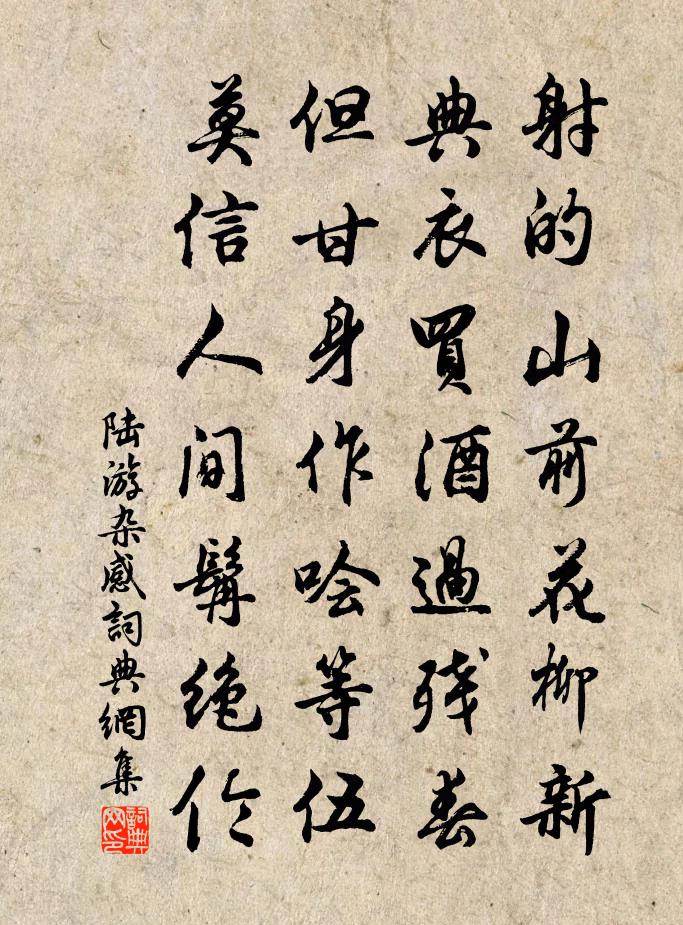 射的山前花柳新
典衣買酒過残春
但甘身作哙等伍
莫信人间髯绝伦
陆游杂感詞典網集
詞典网印